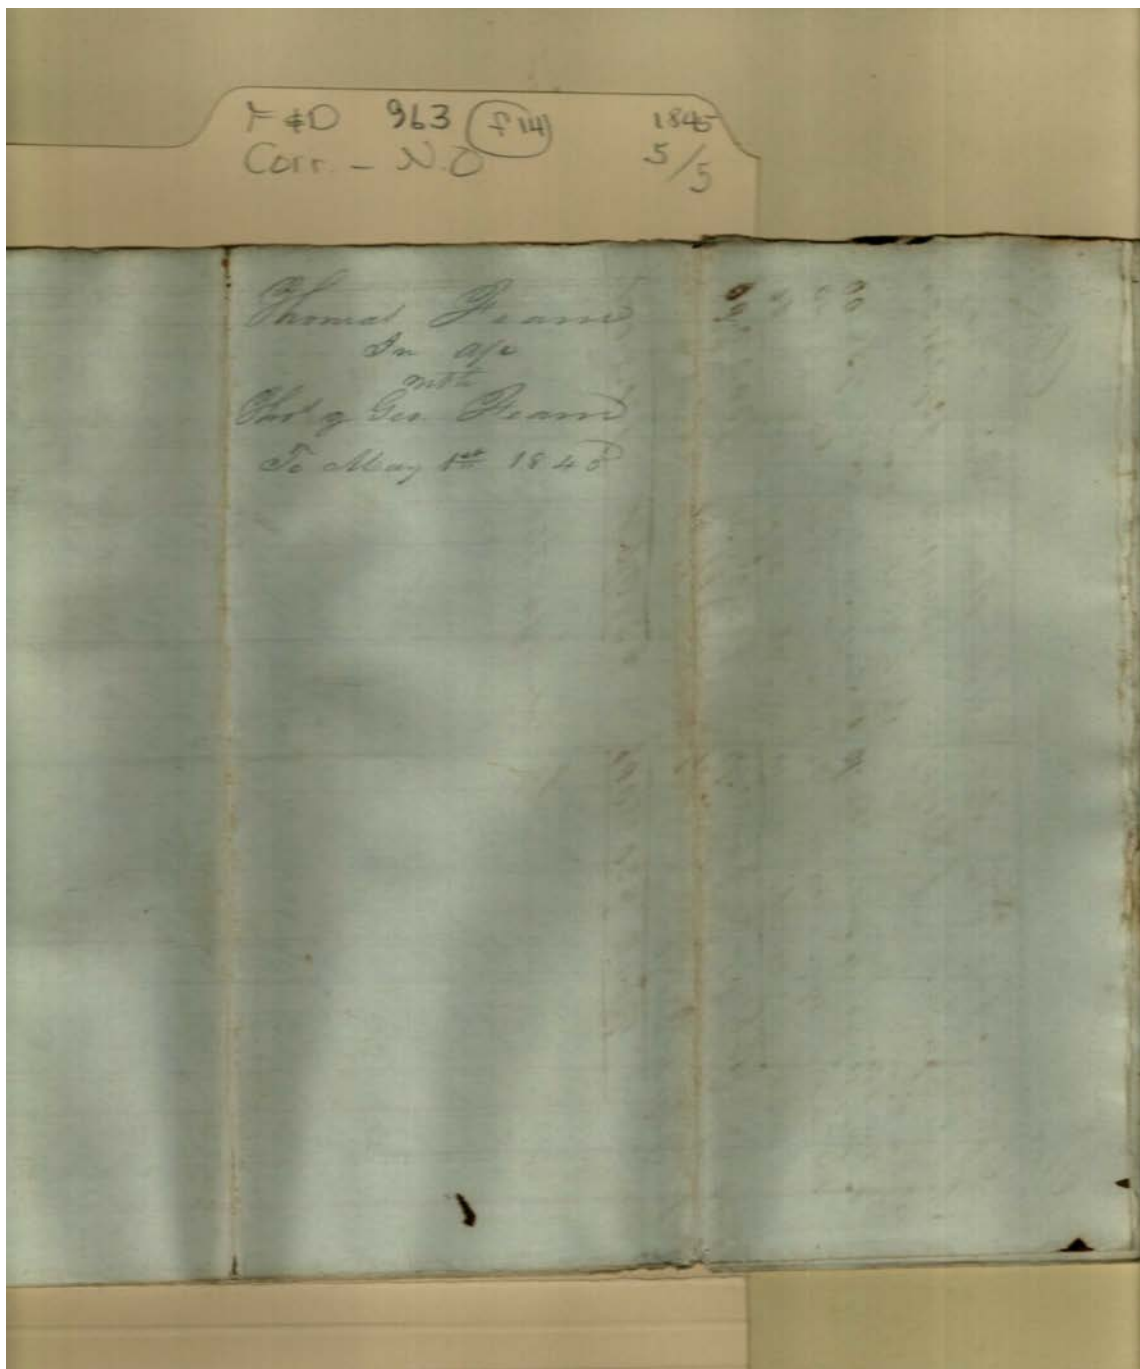 F&D 963 (f 14) 1845
Corr. - N.O 5/5
Thomas Fearn
In a/c
with
Thos & Geo. Fearn
To May 1st 1845